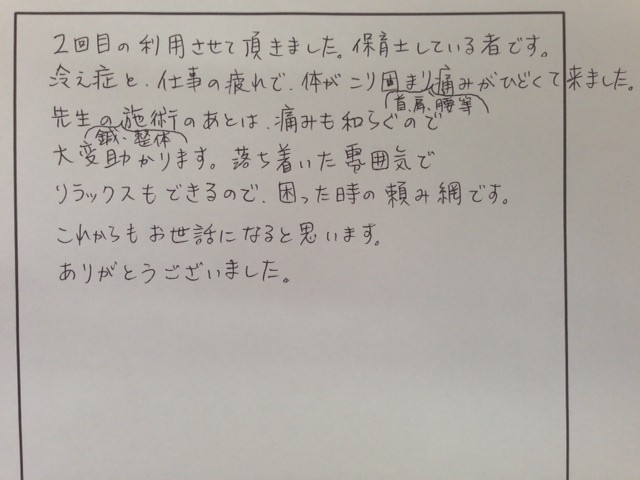 2回目の利用させて頂きました。保育士している者です。
冷え症と、仕事の疲れで、体がこり固まり痛みがひどくて来ました。
首、肩、腰等
先生の施術のあとは、痛みも和らぐので
鍼、整体
大変助かります。落ち着いた雰囲気で
リラックスもできるので、困った時の頼み網です。
これからもお世話になると思います。
ありがとうございました。